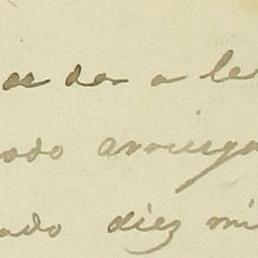 as da a le
ado arriega
ado diez mi